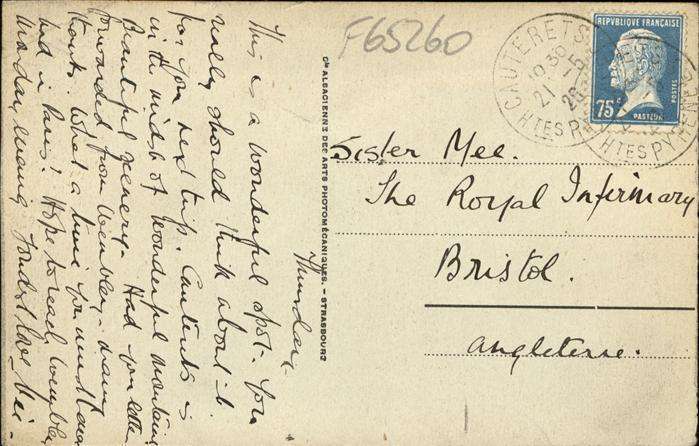 Thursday.
This is a wonderful spot. You
really should think about it
for you next trip. Cauterets is
in the midst of wonderful mountains
Beautiful scenery. Had your letter
forwarded from Wembley - many
thanks. What a time you must have
had in Paris! Hope to reach Wembley
Monday evening. Fondest love
Cie ALSACIENNE DES ARTS PHOTOMÉCANIQUES. - STRASBOURG
F65260
CAUTERETS
21
26
HTES PYR
HTES PYR
REPUBLIQUE FRANÇAISE
POSTES
75c
PASTEUR
Sister Mee.
The Royal Infirmary
Bristol.
Angleterre.